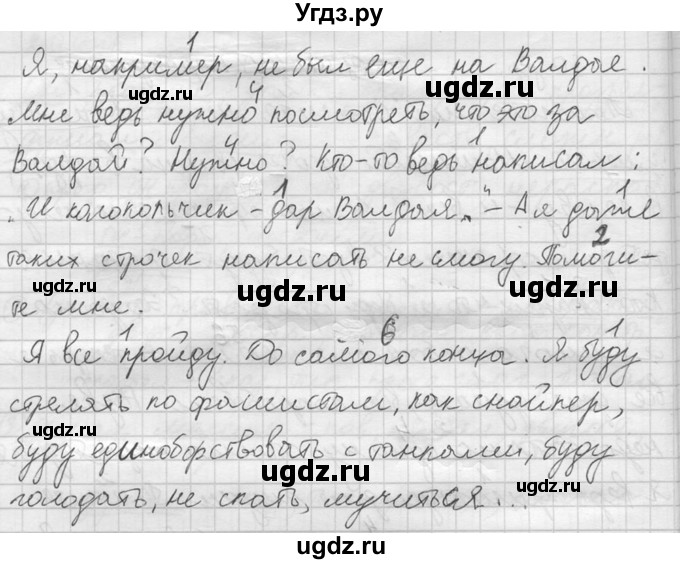 Угдз.ру
Я, например, не был еще на Валдае.
Мне ведь нужно посмотреть, что это за
Валдай? Нужно? Кто-то ведь написал:
„И колокольчик – дар Валдая" – А я даже
таких строчек написать не смогу. Помоги-
те мне.
Я все пройду. До самого конца. Я буду
стрелять по фашистам, как снайпер,
буду единоборствовать с танками, буду
голодать, не спать, мучиться...
1
4
4
1
1
1
2
1
6
1
ugdz.ru
ugdz.ru
ugdz.ru
ugdz.ru
ugdz.ru
ugdz.ru
ugdz.ru
ugdz.ru
ugdz.ru
ugdz.ru
ugdz.ru
ugdz.ru